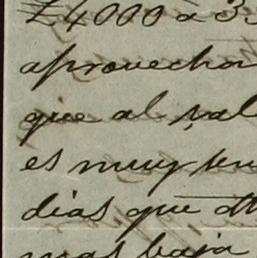 £4000 a 33
aprovechar
que al val
es muy
dias que
mas baja